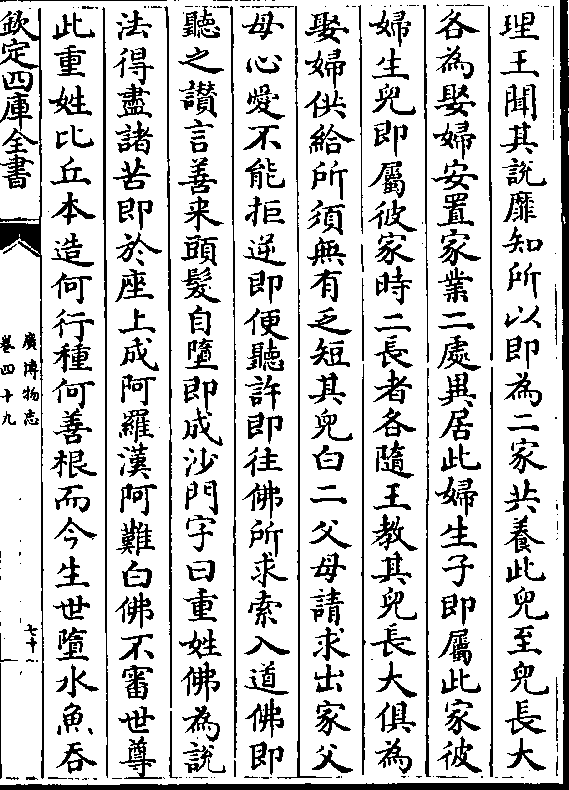 理王聞其說靡知所以即為二家共養此兒至兒長大
各為娶婦安置家業二處異居此婦生子即屬此家彼
婦生兒即屬彼家時二長者各隨王教其兒長大俱為
娶婦供給所須無有乏短其兒白二父母請求出家父
母心愛不能拒逆即便聽許即往佛所求索入道佛即
聽之讃言善来頭髮自墮即成沙門字曰重姓佛為說
法得盡諸苦即於座上成阿羅漢阿難白佛不審世尊
此重姓比丘本造何行種何善根而今生世墮水魚吞
欽定四庫全書
廣博物志
卷四十九
七十